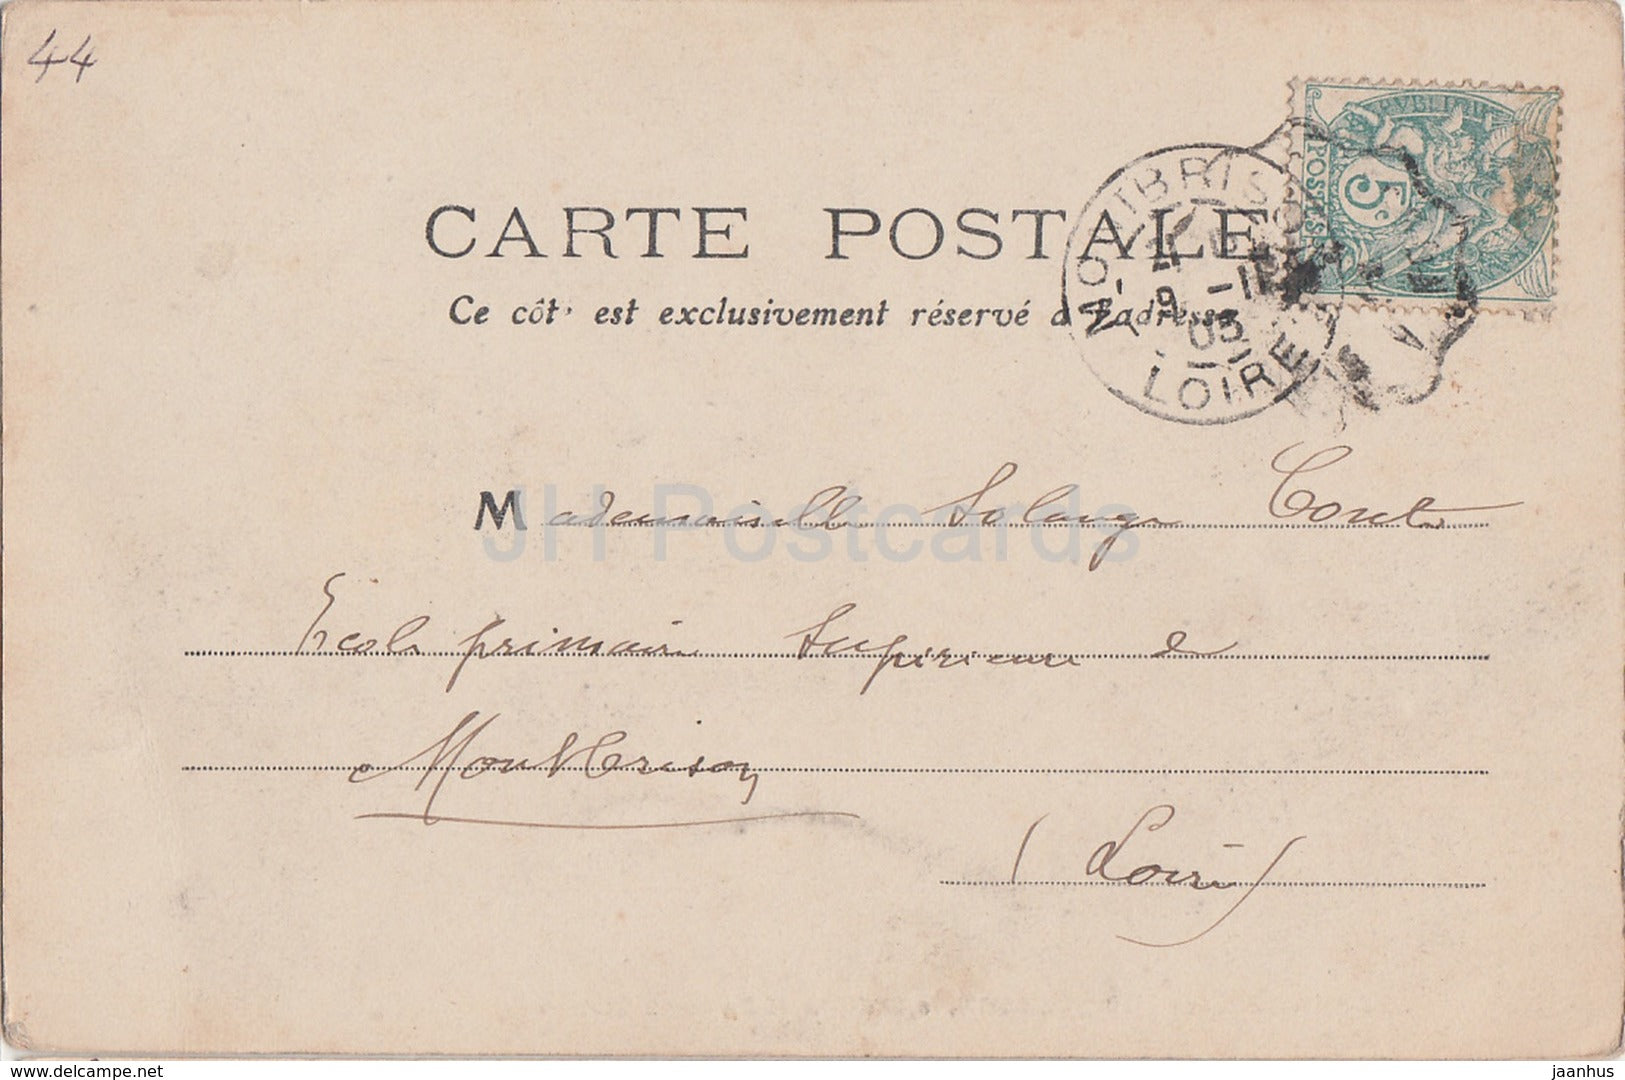 44
RÉPUBLIQUE
POSTES
5c
CARTE POSTALE
Ce côt est exclusivement réservé à l'adresse
MONTBRISON
9 -11
03
LOIRE
JH Postcards
Mademoiselle Solange Cout
Ecole primaire Supérieure de
Montbrison
(Loire)
delcampe.net
jaanhus